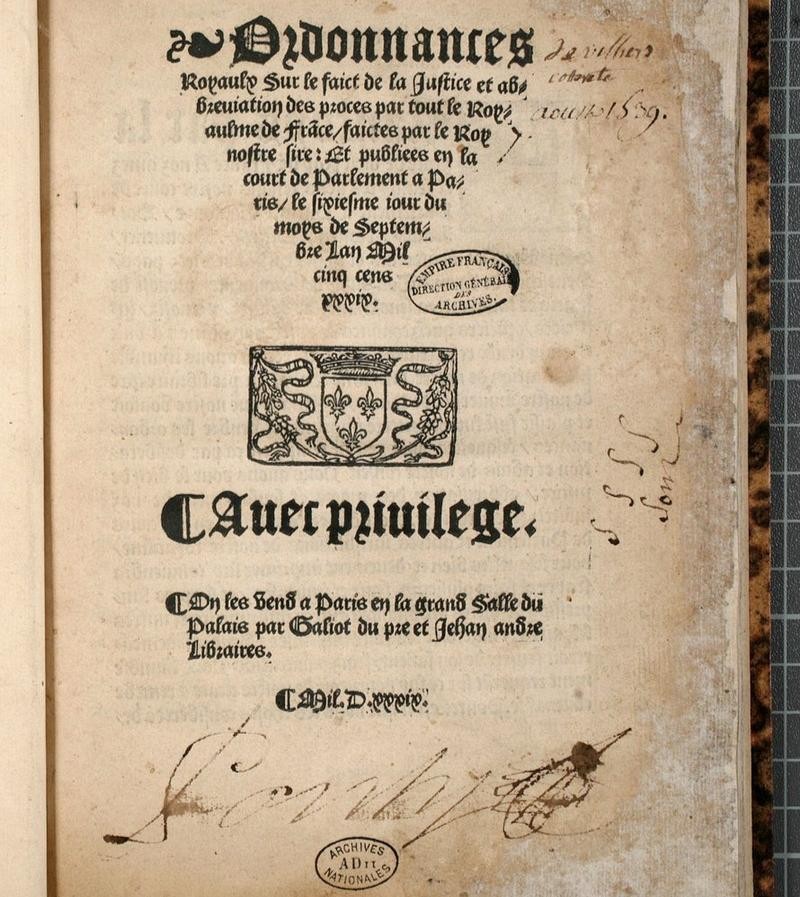 Ordonnances
Royaulx Sur le faict de la Justice et ab⸗
breuiation des proces par tout le Roy⸗
aulme de Frãce/faictes par le Roy
nostre sire: Et publiees en la
court de Parlement a Pa⸗
ris/ le sixiesme iour du
moys de Septem⸗
bre Lan Mil
cinq cens
xxxix.
de villers
coterets
aoust 1539.
EMPIRE FRANÇAIS
DIRECTION GÉNÉRALE
DES
ARCHIVES.
¶Auec priuilege.
¶On les Vend a Paris en la grand Salle du
Palais par Galiot du pre et Jehan andre
Libraires.
¶Mil. D. xxxix.
ARCHIVES
AD II
NATIONALES